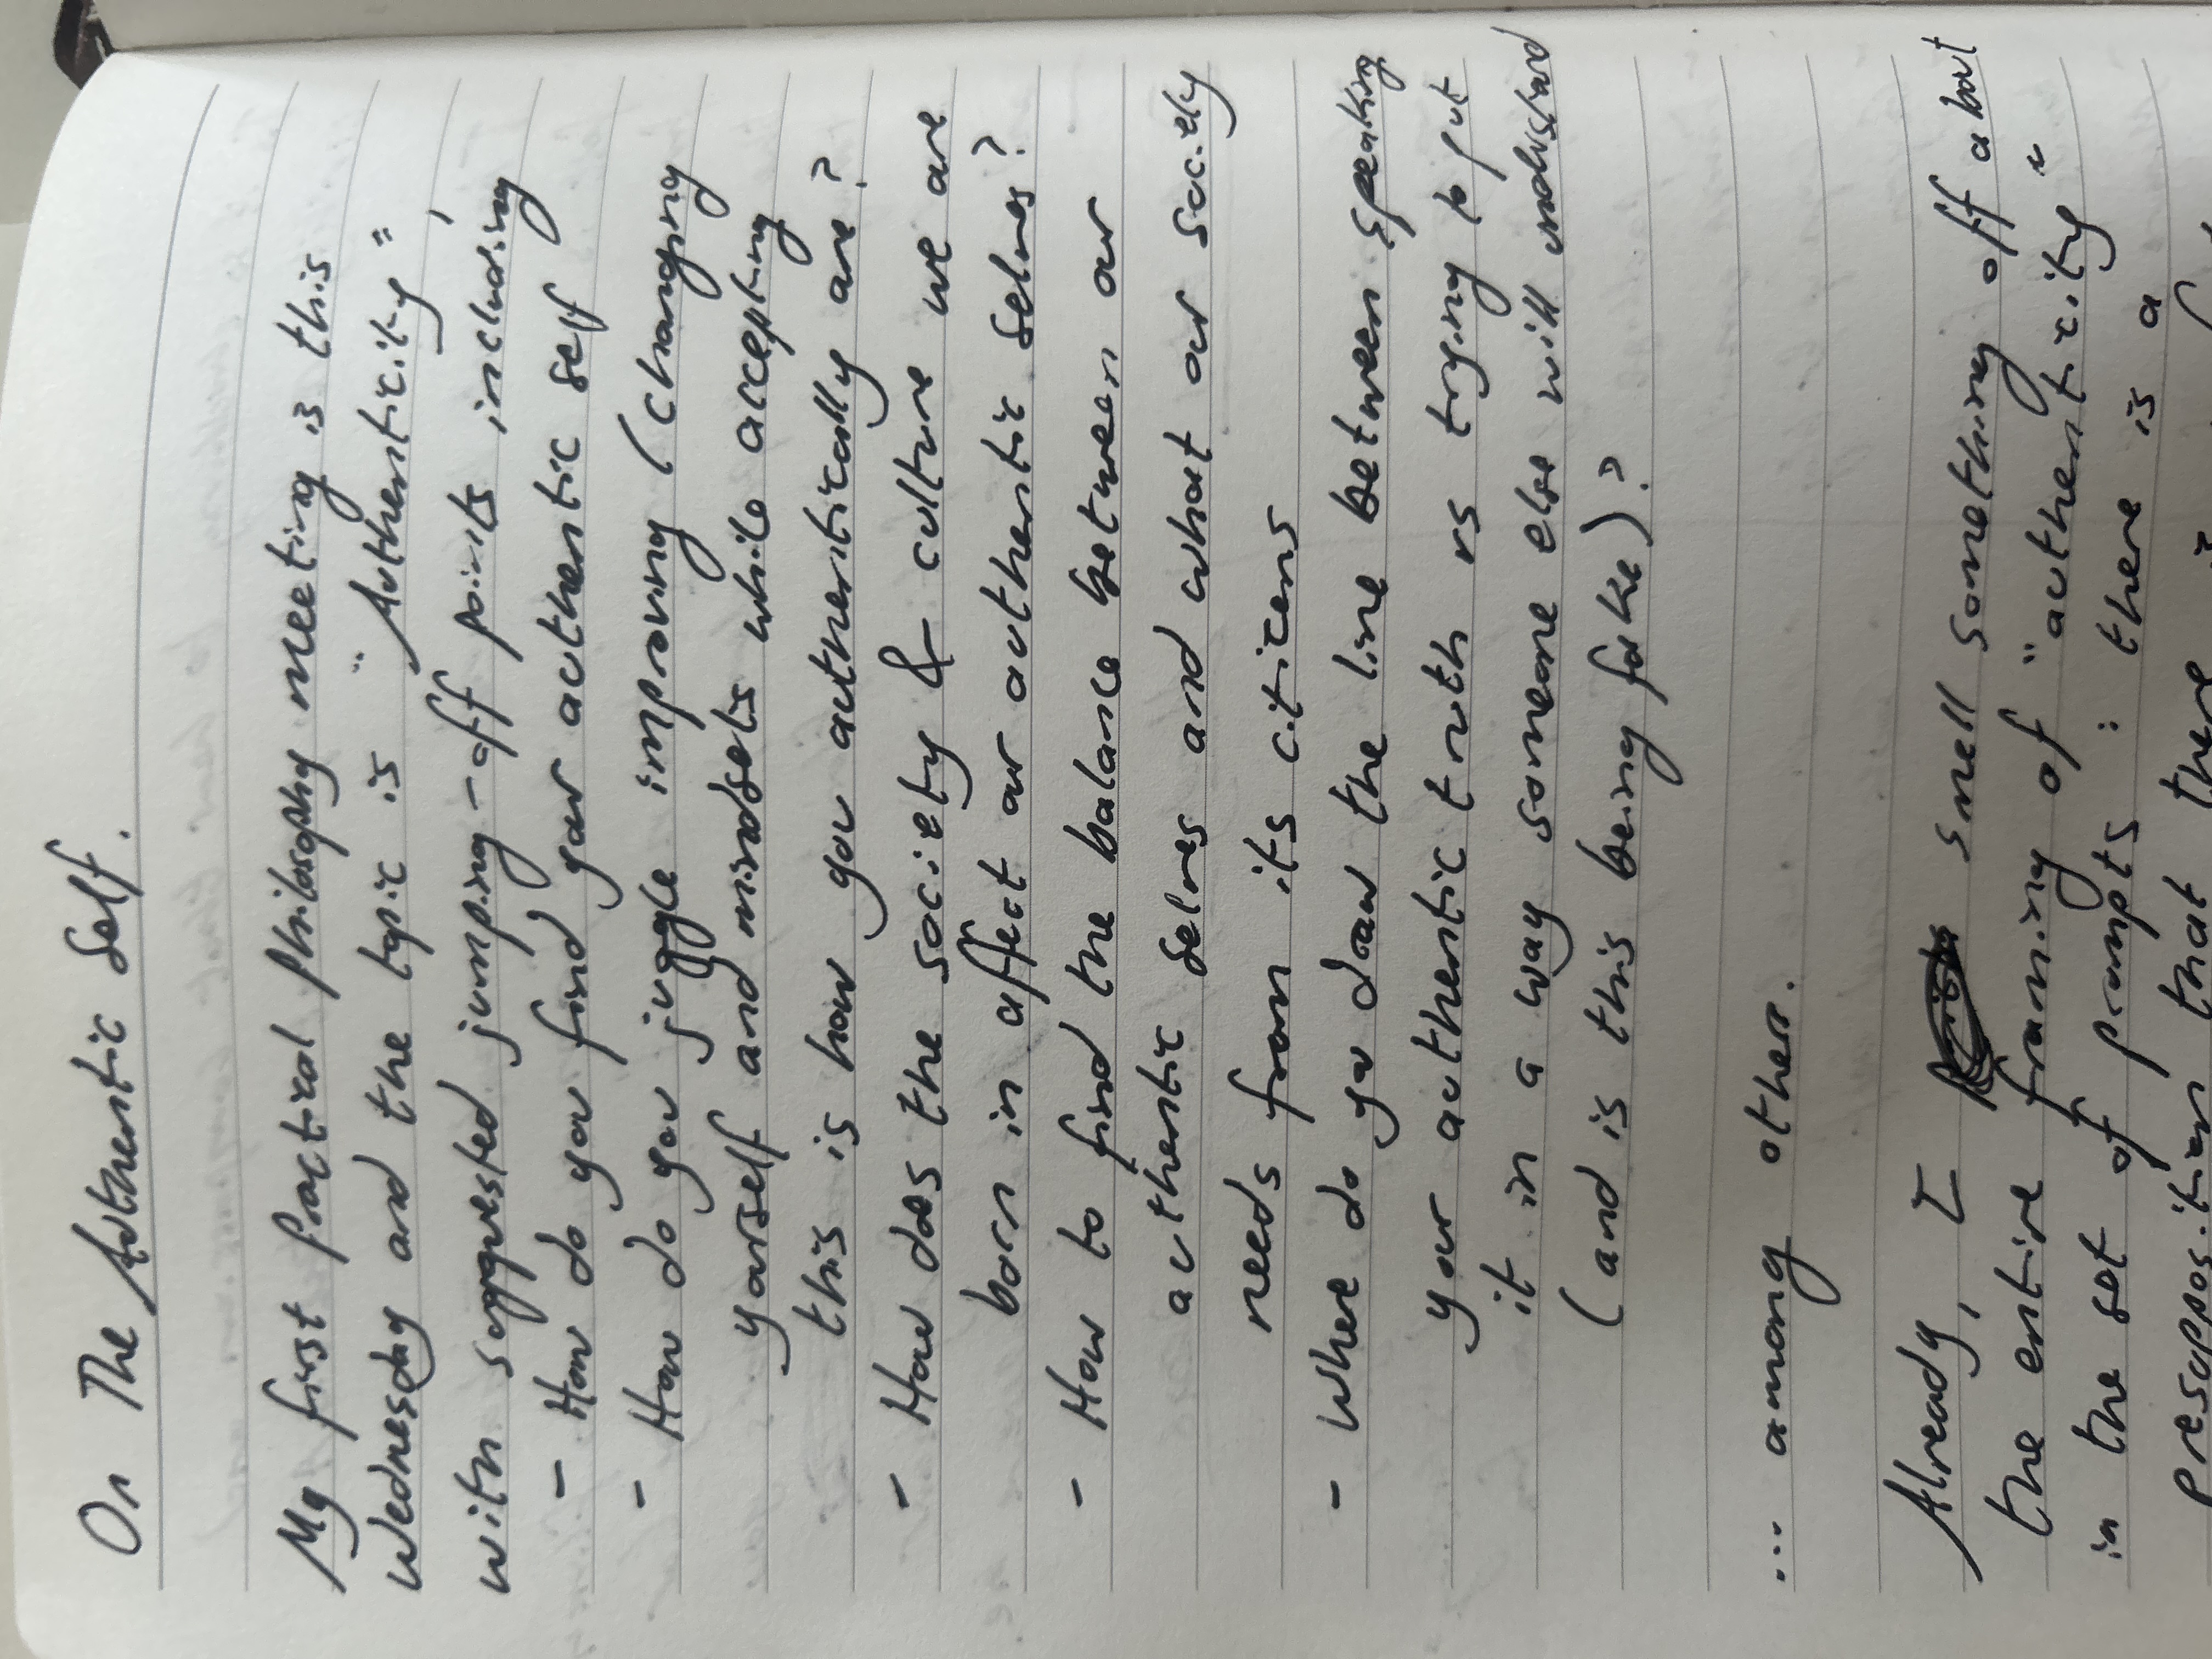 On The Authentic Self.
My first practical philosophy meeting is this
Wednesday and the topic is "Authenticity",
with suggested jumping-off points including
- How do you find your authentic self
- How do you juggle improving (changing
yourself and mindsets while accepting
this is how you authentically are?
- How does the society & culture we are
born in affect our authentic selves?
- How to find the balance between our
authentic selves and what our society
needs from its citizens
- Where do you draw the line between speaking
your authentic truth vs trying to put
it in a way someone else will understand
(and is this being fake)?
... among others.
Already, I smell something off about
the entire framing of "authenticity"
in the set of prompts: there is a
presupposition that there